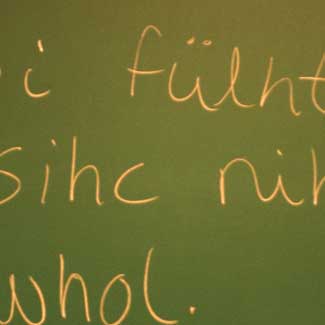 i fülht
sihc nih
whol.